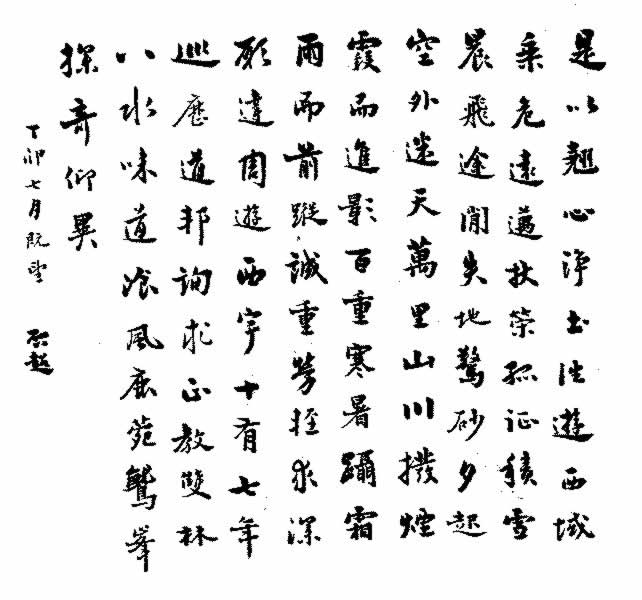 是以翹心淨土往遊西域
乘危遠邁杖策孤征積雪
晨飛途間失地驚砂夕起
空外迷天萬里山川撥煙
霞而進影百重寒暑躡霜
雨而前蹤誠重勞輕求深
願達周遊西宇十有七年
巡歷道邦詢求正教雙林
八水味道飡風鹿苑鷲峯
探奇仰異
丁卯七月既望 启超